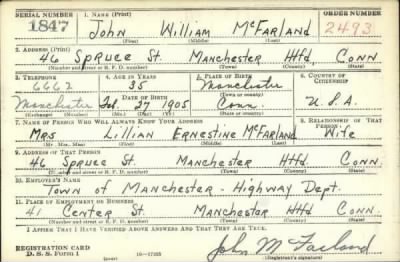 SERIAL NUMBER 1. NAME (Print) ORDER NUMBER
1847 John William McFarland 2493
(First) (Middle) (Last)
2. ADDRESS (Print)
46 Spruce St. Manchester Htfd. Conn
(Number and street or R. F. D. number) (Town) (County) (State)
3. TELEPHONE 4. AGE IN YEARS 5. PLACE OF BIRTH 6. COUNTRY OF CITIZENSHIP
6662 35 Manchester
DATE OF BIRTH (Town or county)
Manchester Feb. 27 1905 Conn. U.S.A.
(Exchange) (Number) (Mo.) (Day) (Yr.) (State or country)
7. NAME OF PERSON WHO WILL ALWAYS KNOW YOUR ADDRESS 8. RELATIONSHIP OF THAT PERSON
Mrs Lillian Ernestine McFarland Wife
(Mr., Mrs., Miss) (First) (Middle) (Last)
9. ADDRESS OF THAT PERSON
46 Spruce St. Manchester Htfd. Conn.
(Number and street or R. F. D. number) (Town) (County) (State)
10. EMPLOYER'S NAME
Town of Manchester - Highway Dept.
11. PLACE OF EMPLOYMENT OR BUSINESS
41 Center St Manchester Htfd Conn
(Number and street or R. F. D. number) (Town) (County) (State)
I AFFIRM THAT I HAVE VERIFIED ABOVE ANSWERS AND THAT THEY ARE TRUE.
REGISTRATION CARD
D. S. S. Form 1 (over) John McFarland
(Registrant's signature)